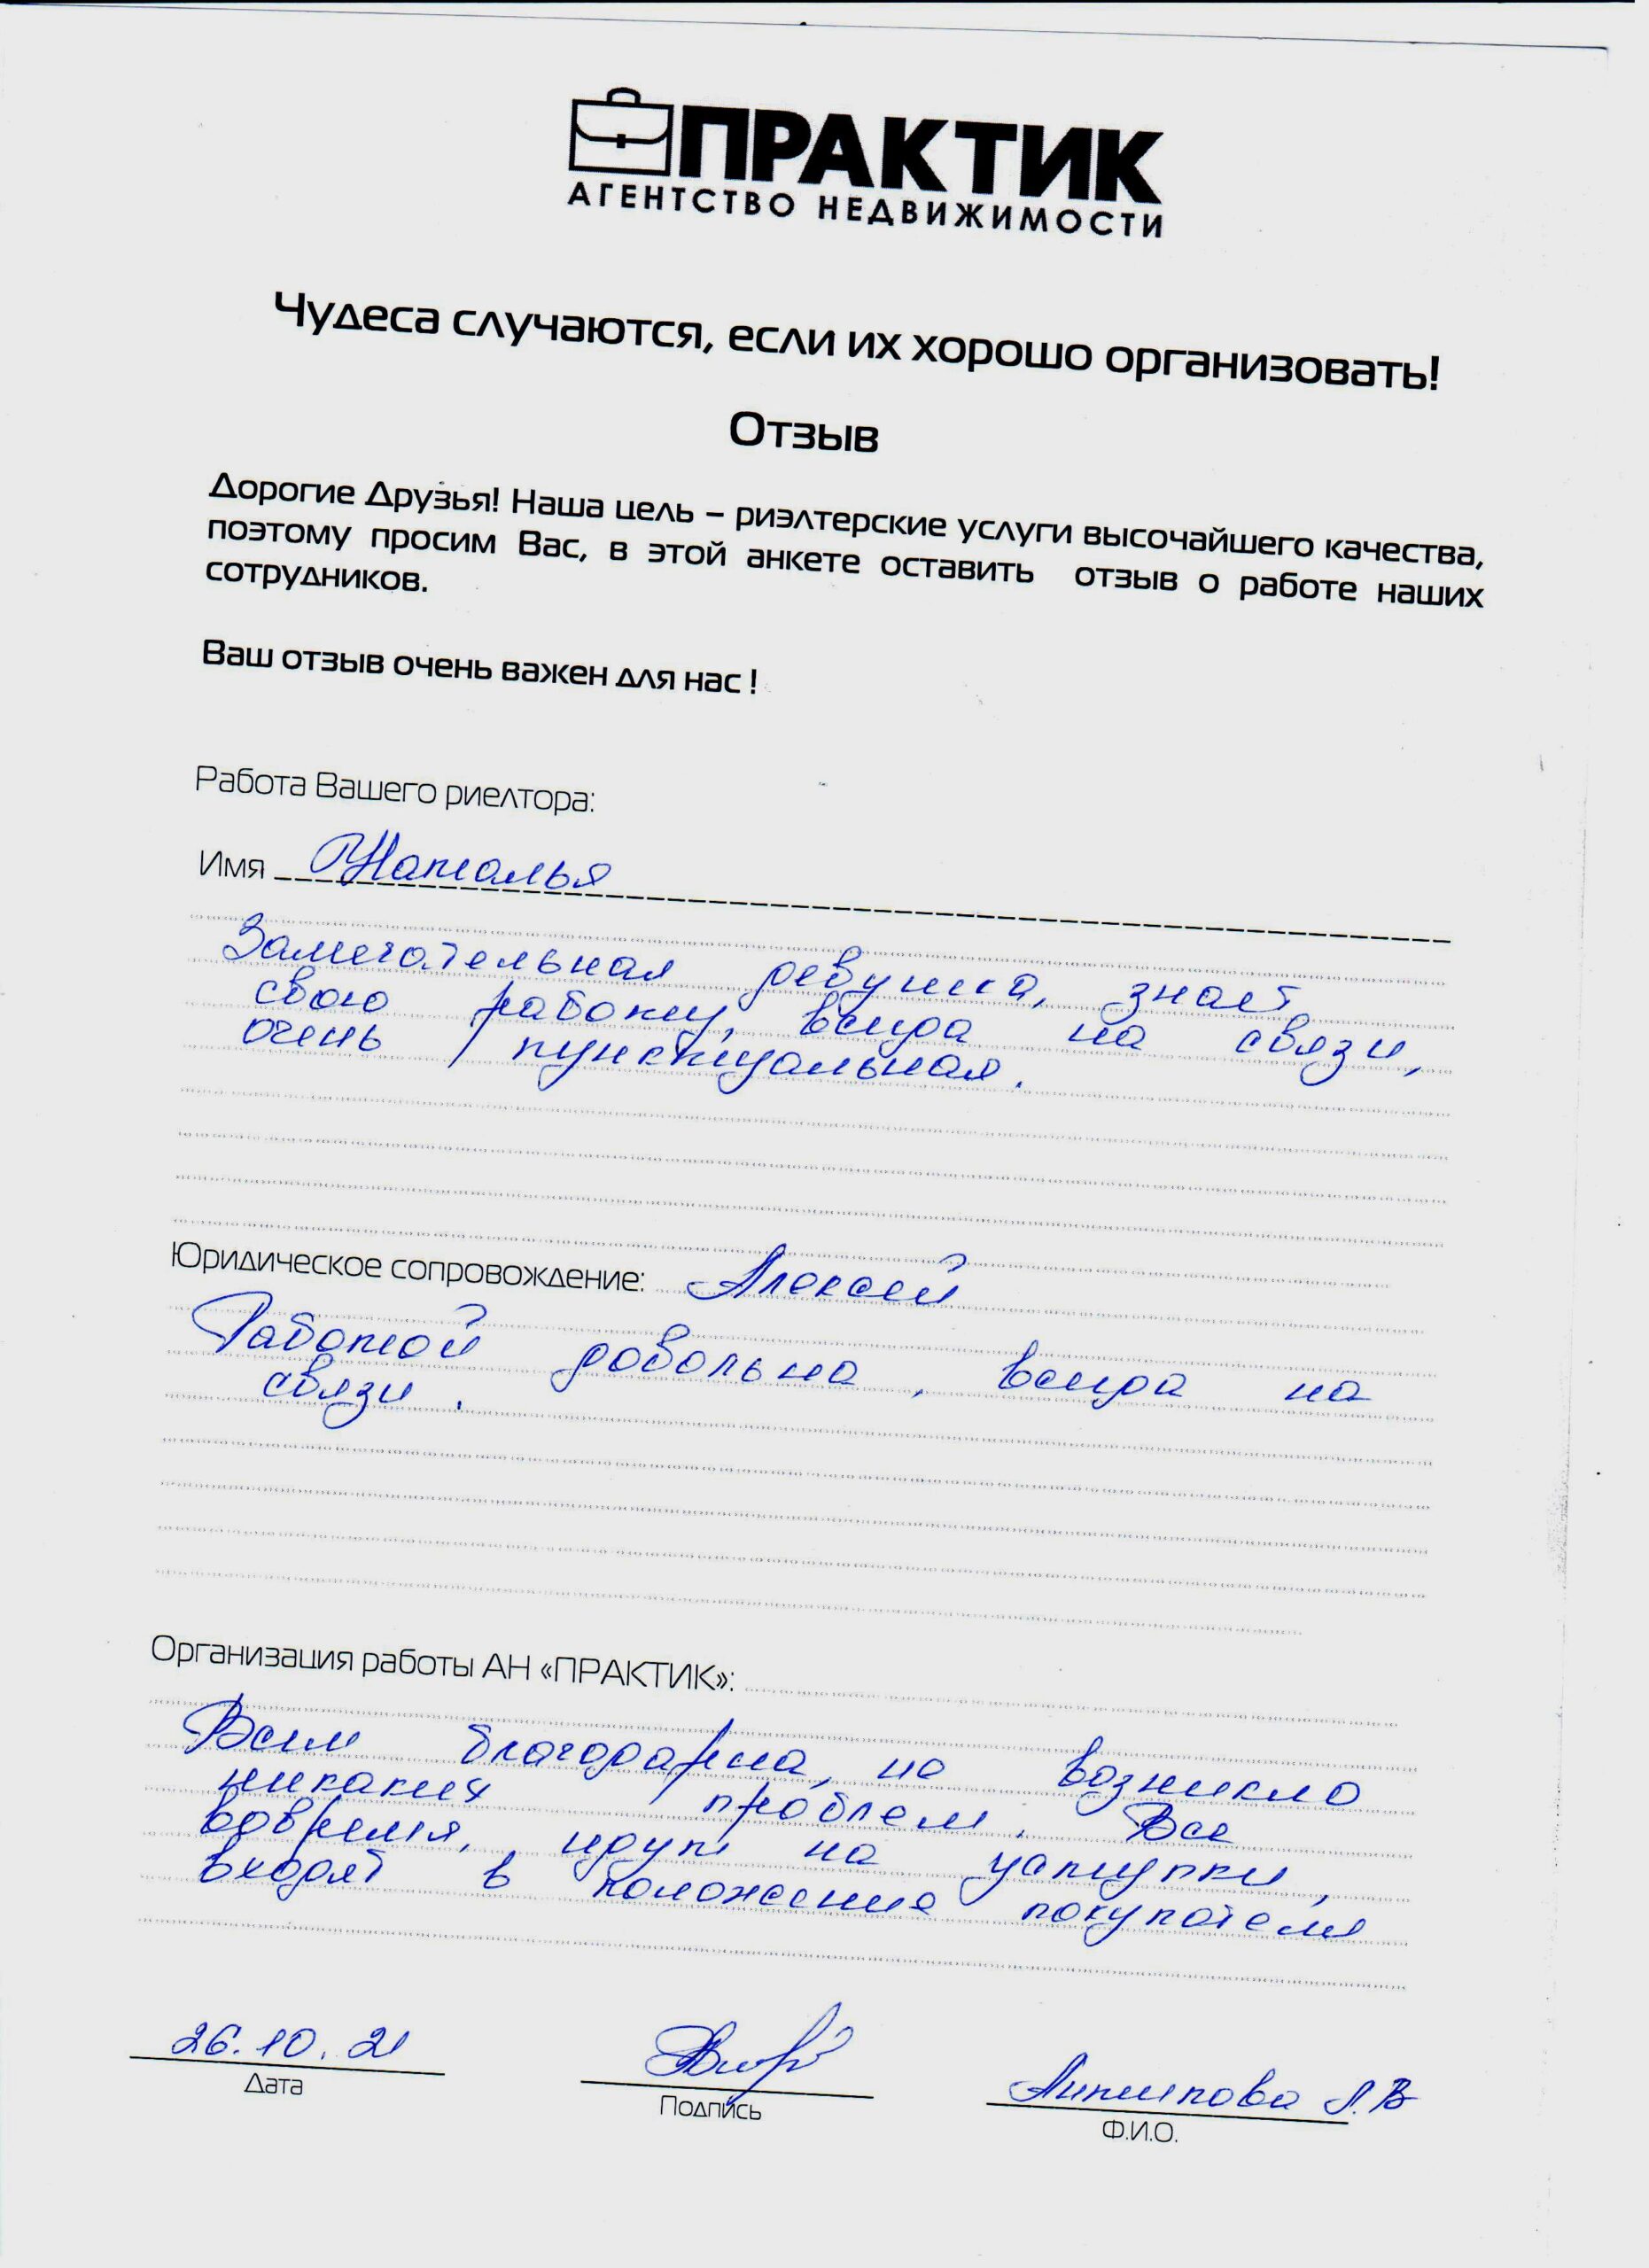 ПРАКТИК
АГЕНТСТВО НЕДВИЖИМОСТИ
Чудеса случаются, если их хорошо организовать!
Отзыв
Дорогие Друзья! Наша цель – риэлтерские услуги высочайшего качества,
поэтому просим Вас, в этой анкете оставить отзыв о работе наших
сотрудников.
Ваш отзыв очень важен для нас !
Работа Вашего риелтора:
Имя Наталья
Замечательная девушка, знает
свою работу, всегда на связи,
очень пунктуальная.
Юридическое сопровождение: Алексей
Работой довольна, всегда на
связи.
Организация работы АН «ПРАКТИК»:
Всем благодарна, не возникло
никаких проблем. Все
вовремя, идут на уступки,
входят в положение покупателя
26.10.21
Дата
Подпись
Л.В
Ф.И.О.